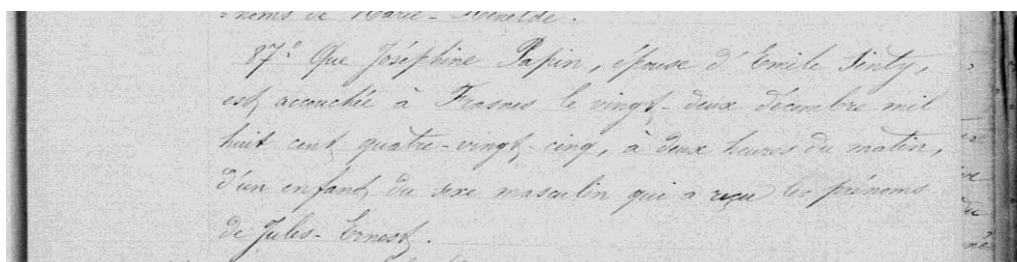 =noms de Marie-Renelde.
87° Que Joséphine Papin, épouse d'Emile Sinty,
est accouchée à Frasnes le vingt-deux décembre mil
huit cent quatre-vingt-cinq, à deux heures du matin,
d'un enfant du sexe masculin qui a reçu les prénoms
de Jules-Ernest.